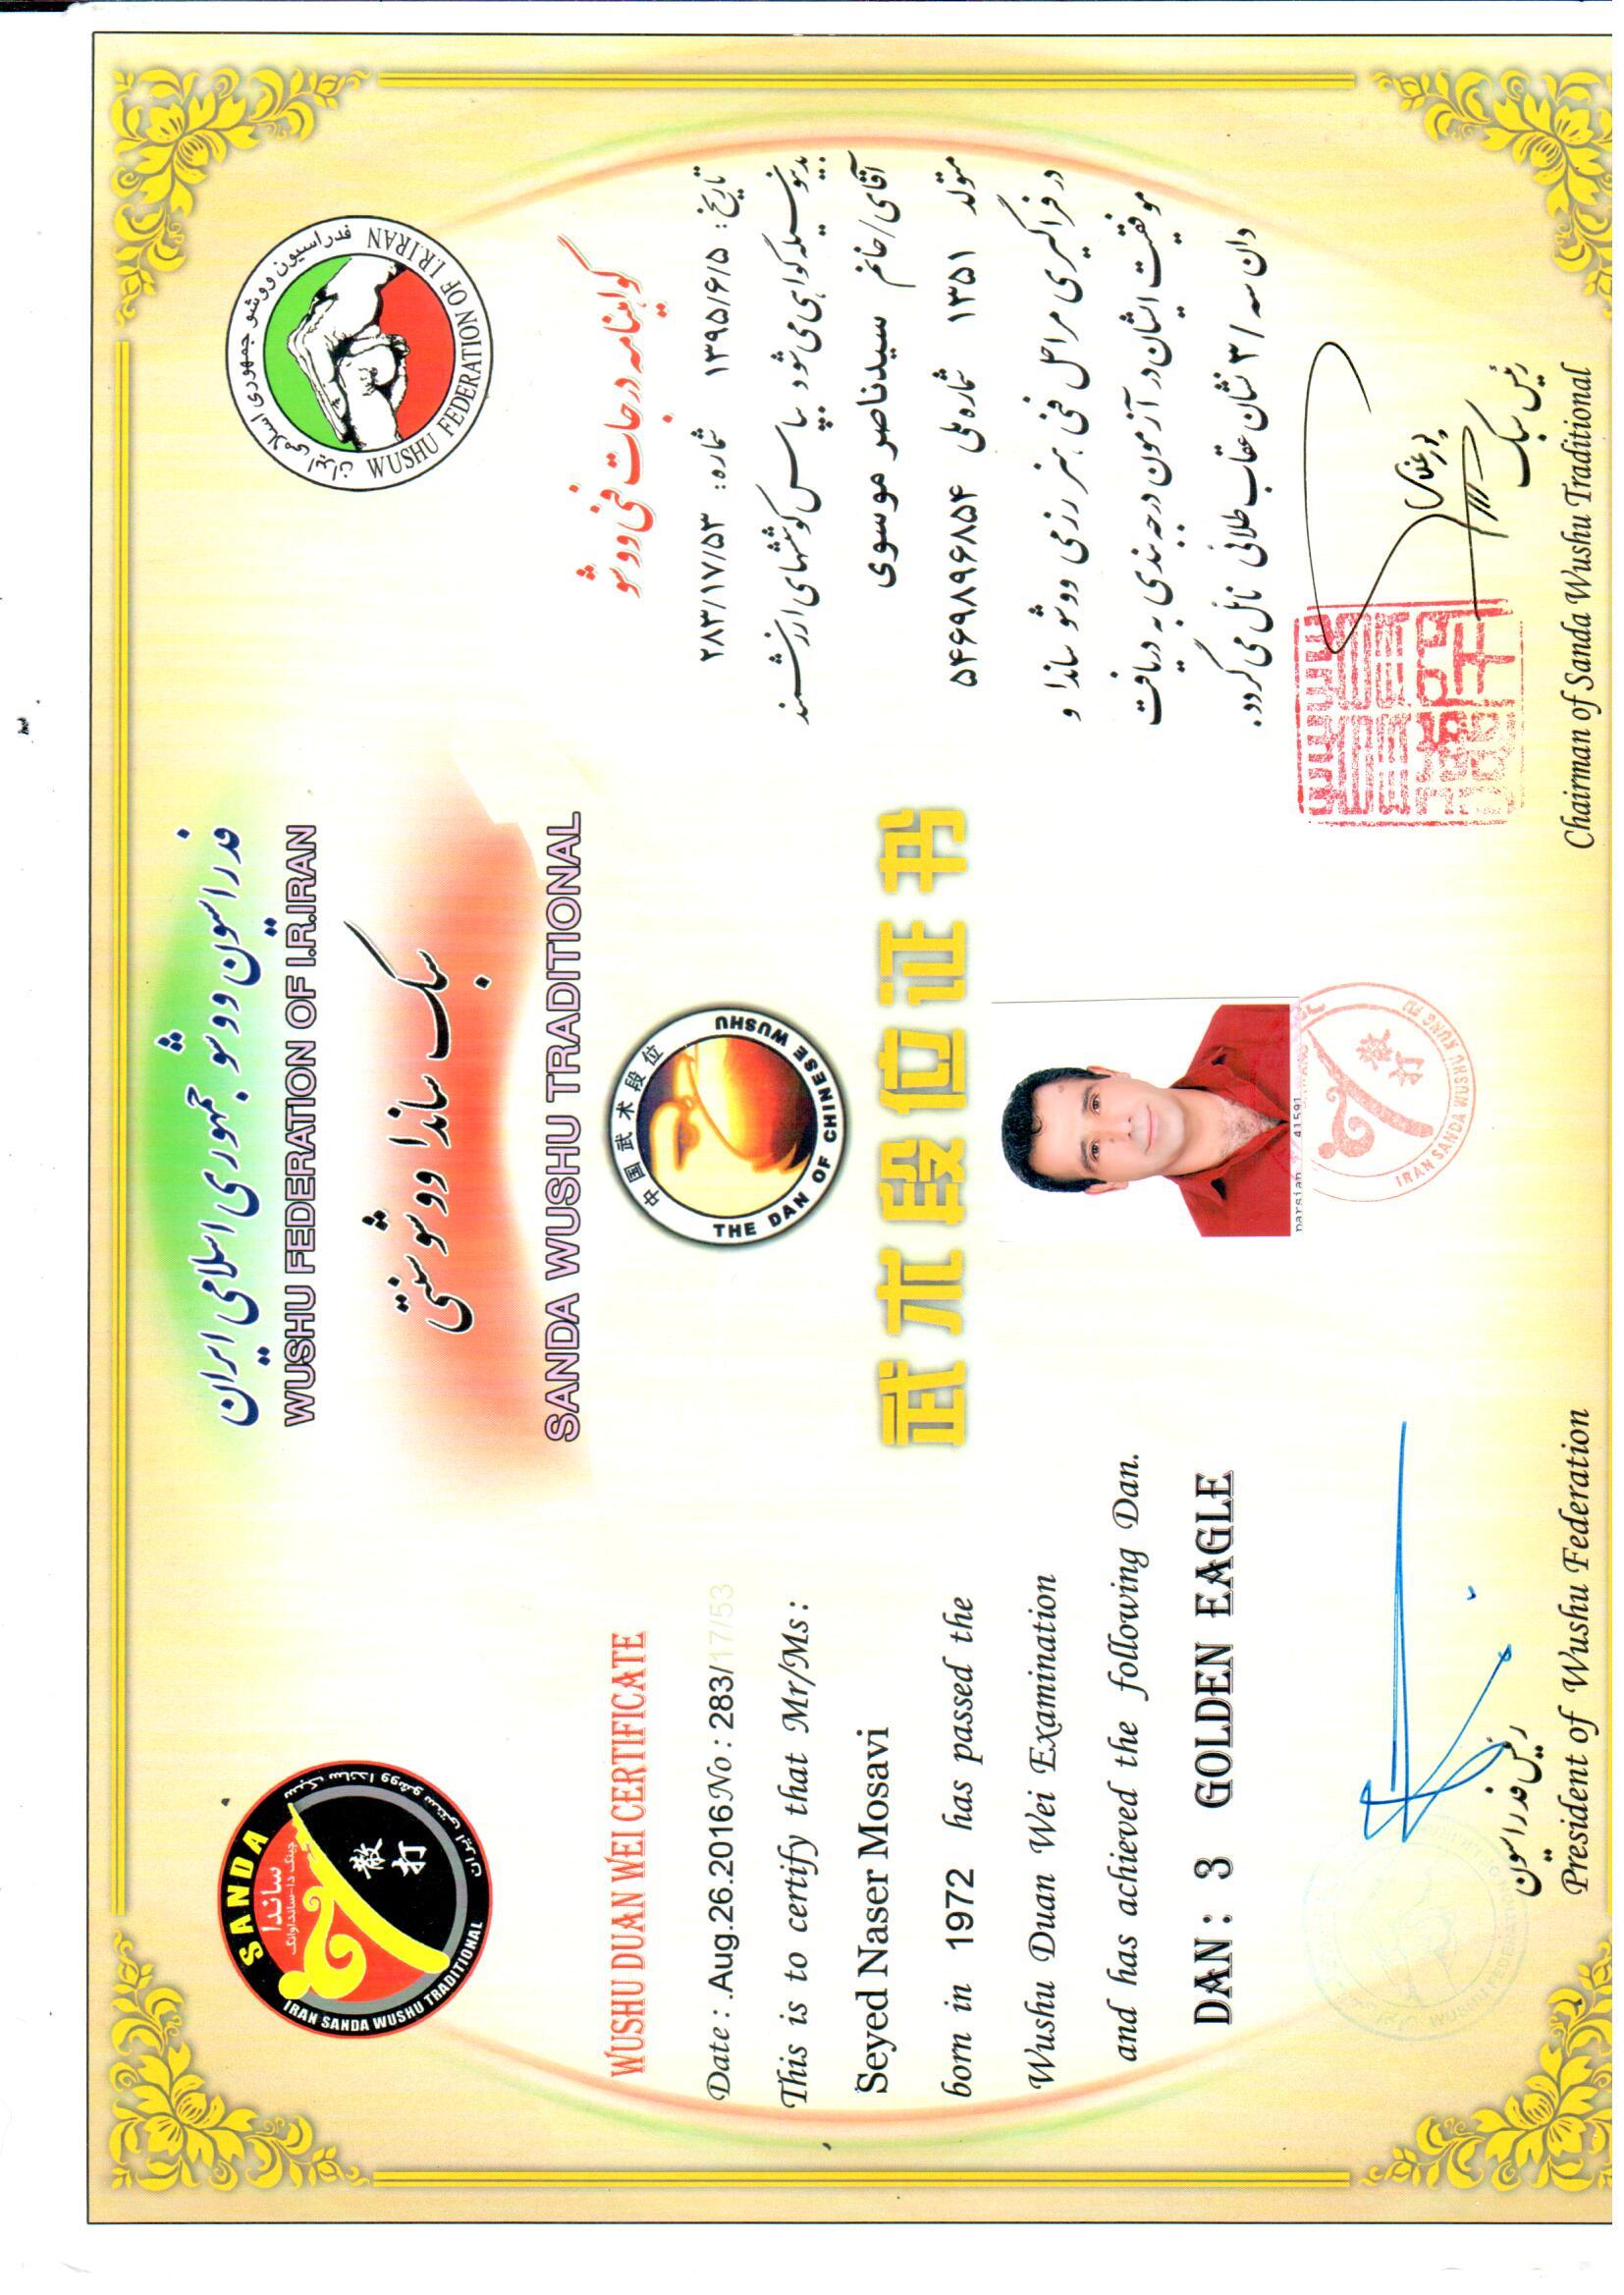 فدراسیون ووشو جمهوری اسلامی ایران
WUSHU FEDERATION OF I.R.IRAN
سبک ساندا ووشو سنتی
SANDA WUSHU TRADITIONAL
SANDA
ساندا
چینگ دا-ساندا وانگ
散打
سبک ساندا ووشو سنتی ایران
IRAN SANDA WUSHU TRADITIONAL
فدراسیون ووشو جمهوری اسلامی ایران
WUSHU FEDERATION OF I.R.IRAN
中国武术段位
THE DAN OF CHINESE WUSHU
武术段位证书
WUSHU DUAN WEI CERTIFICATE
Date : .Aug.26.2016 No : 283/17/53
This is to certify that Mr/Ms :
Seyed Naser Mosavi
born in 1972 has passed the
Wushu Duan Wei Examination
and has achieved the following Dan.
DAN : 3 GOLDEN EAGLE
گواهینامه درجات فنی ووشو
تاریخ: ۱۳۹۵/۶/۵ شماره: ۲۸۳/۱۷/۵۳
بدینوسیله گواهی می شود بپاس کوششهای ارزشمند
آقای/خانم سیدناصر موسوی
متولد ۱۳۵۱ شماره ملی ۵۴۶۹۸۹۶۸۵۴
در فراگیری مراحل فنی هنر رزمی ووشو ساندا و
موفقیت ایشان در آزمون درجه بندی به دریافت
دان سه /۳ نشان عقاب طلائی نائل می گردد.
parsian 41591
散打
IRAN SANDA WUSHU KUNG FU
رئیس فدراسیون
President of Wushu Federation
WUSHU FEDERATION
رئیس سبک
Chairman of Sanda Wushu Traditional